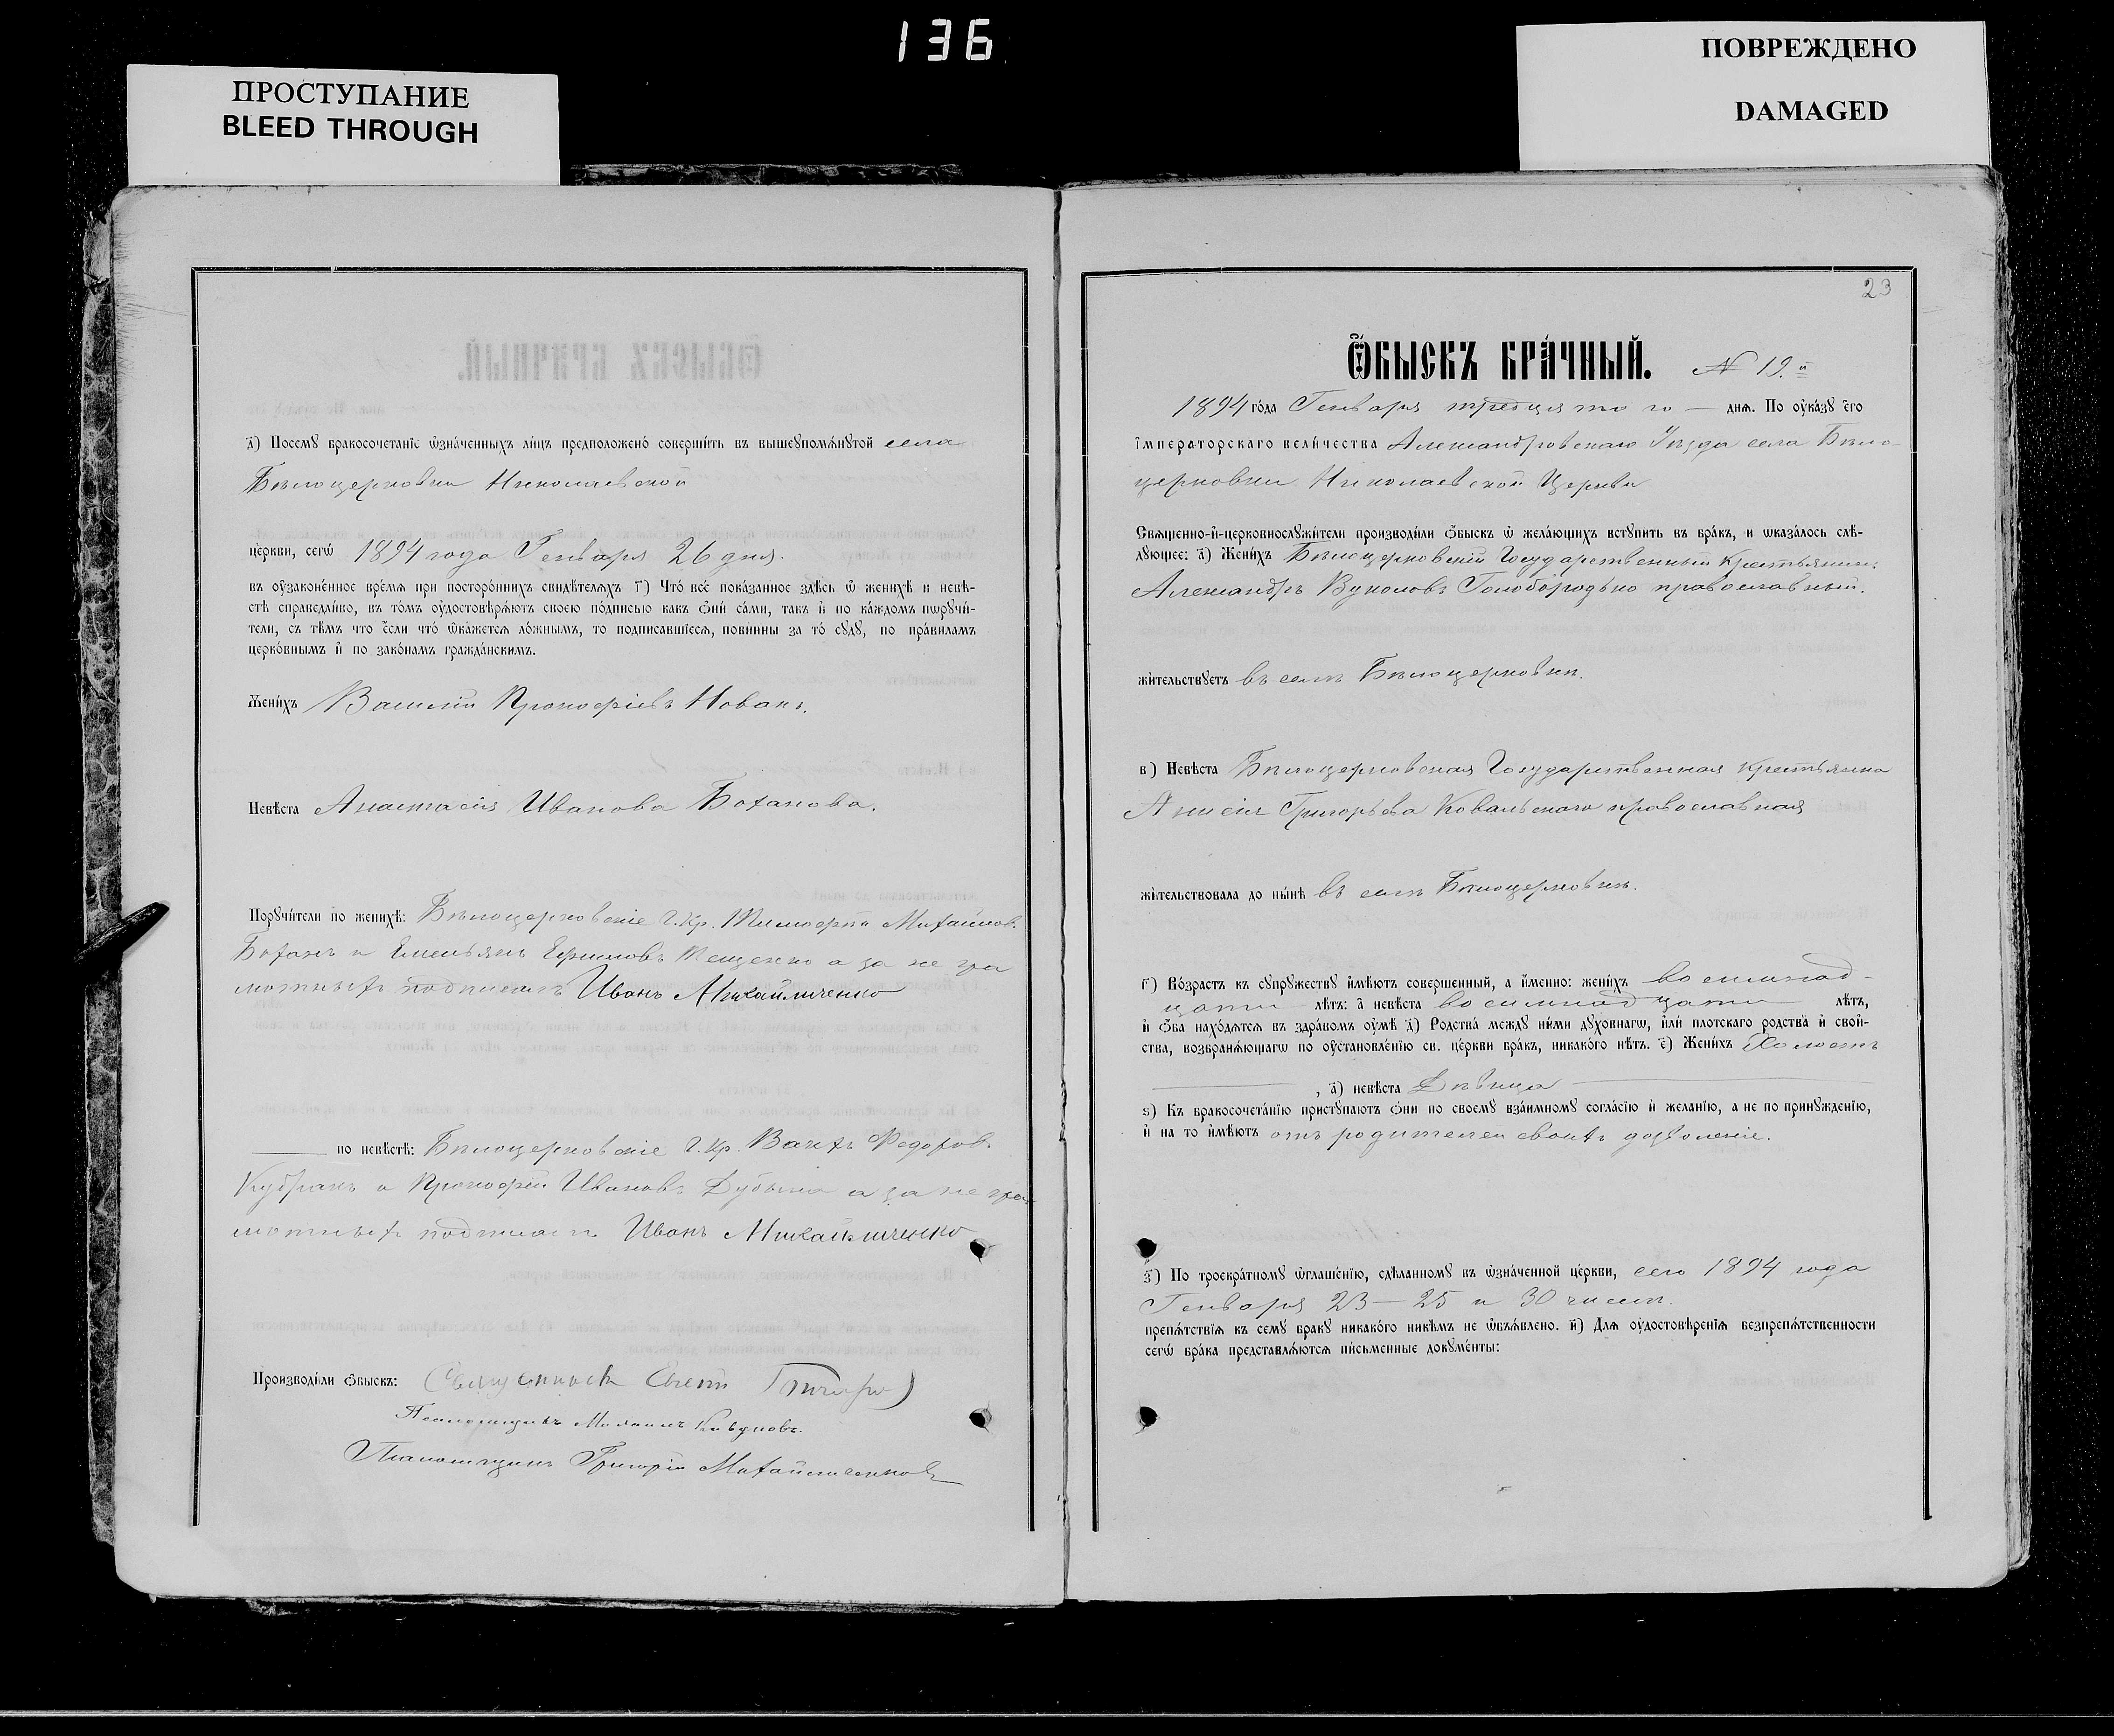 136
ПРОСТУПАНИЕ
BLEED THROUGH
ПОВРЕЖДЕНО
DAMAGED
д҃) Посемꙋ бракосочетанїе ѡзна́ченныхъ ли́цъ предположено́ соверши́ть въ вышеꙋпомѧ́нꙋтой села
Бѣлоцерковки Николаевской
це́ркви, сегѡ̀ 1894 года Генваря 26 дня.
въ оузаконе́нное вре́мѧ при посторо́ннихъ свидѣ́телѧхъ г҃) Что́ все́ пока́занное здѣ́сь ѡ женихѣ̀ и невѣ́-
стѣ справедли́во, въ то́мъ оудостовѣрѧ́ютъ своею по́дписью какъ ѻни́ са́ми, такъ и҆ по ка́ждомъ пѡрꙋчи́-
тели, съ тѣ́мъ что є҆́сли что́ ѡка́жетсѧ ло́жнымъ, то подписавшїесѧ, пови́нны за то́ сꙋдꙋ, по пра́виламъ
церко́внымъ и҆ по зако́намъ гражда́нскимъ.
Жени́хъ Василій Прокофіевъ Ковань.
Невѣста Анастасія Иванова Боханова.
Порꙋчи́тели по женихѣ̀: Бѣлоцерковскіе Г. Кр. Тимофѣй Михайлов.
Боханъ и Емельянъ Ефимовъ Тещенко а за не гра
мотныхъ подписалъ Иванъ Михайличенко
по невѣстѣ: Бѣлоцерковскіе Г. Кр. Федоровъ
Кубракъ и Прокофій Ивановъ а за не гра-
мотныхъ подписалъ Иванъ Михайличенко
Производи́ли ѻбыскъ: Священникъ
Псаломщикъ
Псаломщикъ Григорій Михайличенковъ
23
Ѻбыскъ бра́чный. N 19.й
1894 го́да Генваря тридцятого — днѧ. По оука́зꙋ є҆го
і҆мператорскаго вели́чества Александровскаго Уѣзда села Бѣло-
церковки Николаевской Церкви
Свѧщенно-и҆-церковнослꙋжи́тели производи́ли ѻбыскъ ѡ жела́ющихъ встꙋпить въ бра́къ, и ѡказа́лось слѣ́-
дꙋющее: а҃) Жени́хъ Бѣлоцерковскій Государственный Крестьянин.
Александръ Вуколовъ Голобородько православный.
жи́тельствꙋетъ въ селѣ Бѣлоцерковки.
в) Невѣста Бѣлоцерковская Государственная крестьянка
Анисія Григорьева Ковальскаго православная
жи́тельствовала до ны́нѣ въ селѣ Бѣлоцерковкѣ.
г҃) Во́зрастъ къ сꙋпрꙋжествꙋ и҆мѣ́ютъ соверше́нный, а и҆́менно: жени́хъ восемнад-
цати лѣтъ: а҆ невѣста восемнадцати лѣтъ,
и҆ ѻ́ба нахо́дѧтсѧ въ здра́вомъ оумѣ̀ д҃) Родства́ междꙋ ни́ми дꙋхо́внагѡ, и҆ли́ плотскаго родства̀ и҆ свой-
ства, возбранѧ́ющагѡ по оустановле́нїю св. це́ркви бра́къ, никако́го нѣ́тъ. є҃) Жени́хъ Холостъ
, а҃) невѣста Дѣвица
ѕ) Къ бракосочета́нїю пристꙋпаютъ ѻни по своемꙋ вза́имномꙋ согла́сїю и҆ жела́нїю, а не по принꙋжде́нїю,
и҆ на то и҆мѣ́ютъ отъ родителей своихъ дозволеніе.
з҃) По троекра́тномꙋ ѡглаше́нїю, сдѣ́ланномꙋ въ ѡзна́ченной це́ркви, сего 1894 года
Генваря 23 — 25 и 30 числѣ.
препѧ́тствїѧ къ семꙋ бракꙋ никако́го никѣ́мъ не ѡбъѧ́влено. и҃) Длѧ оудостовѣ́ренїѧ безпрепѧ́тственности
сегѡ̀ бра́ка представлѧ́ютсѧ пи́сьменные докꙋме́нты: